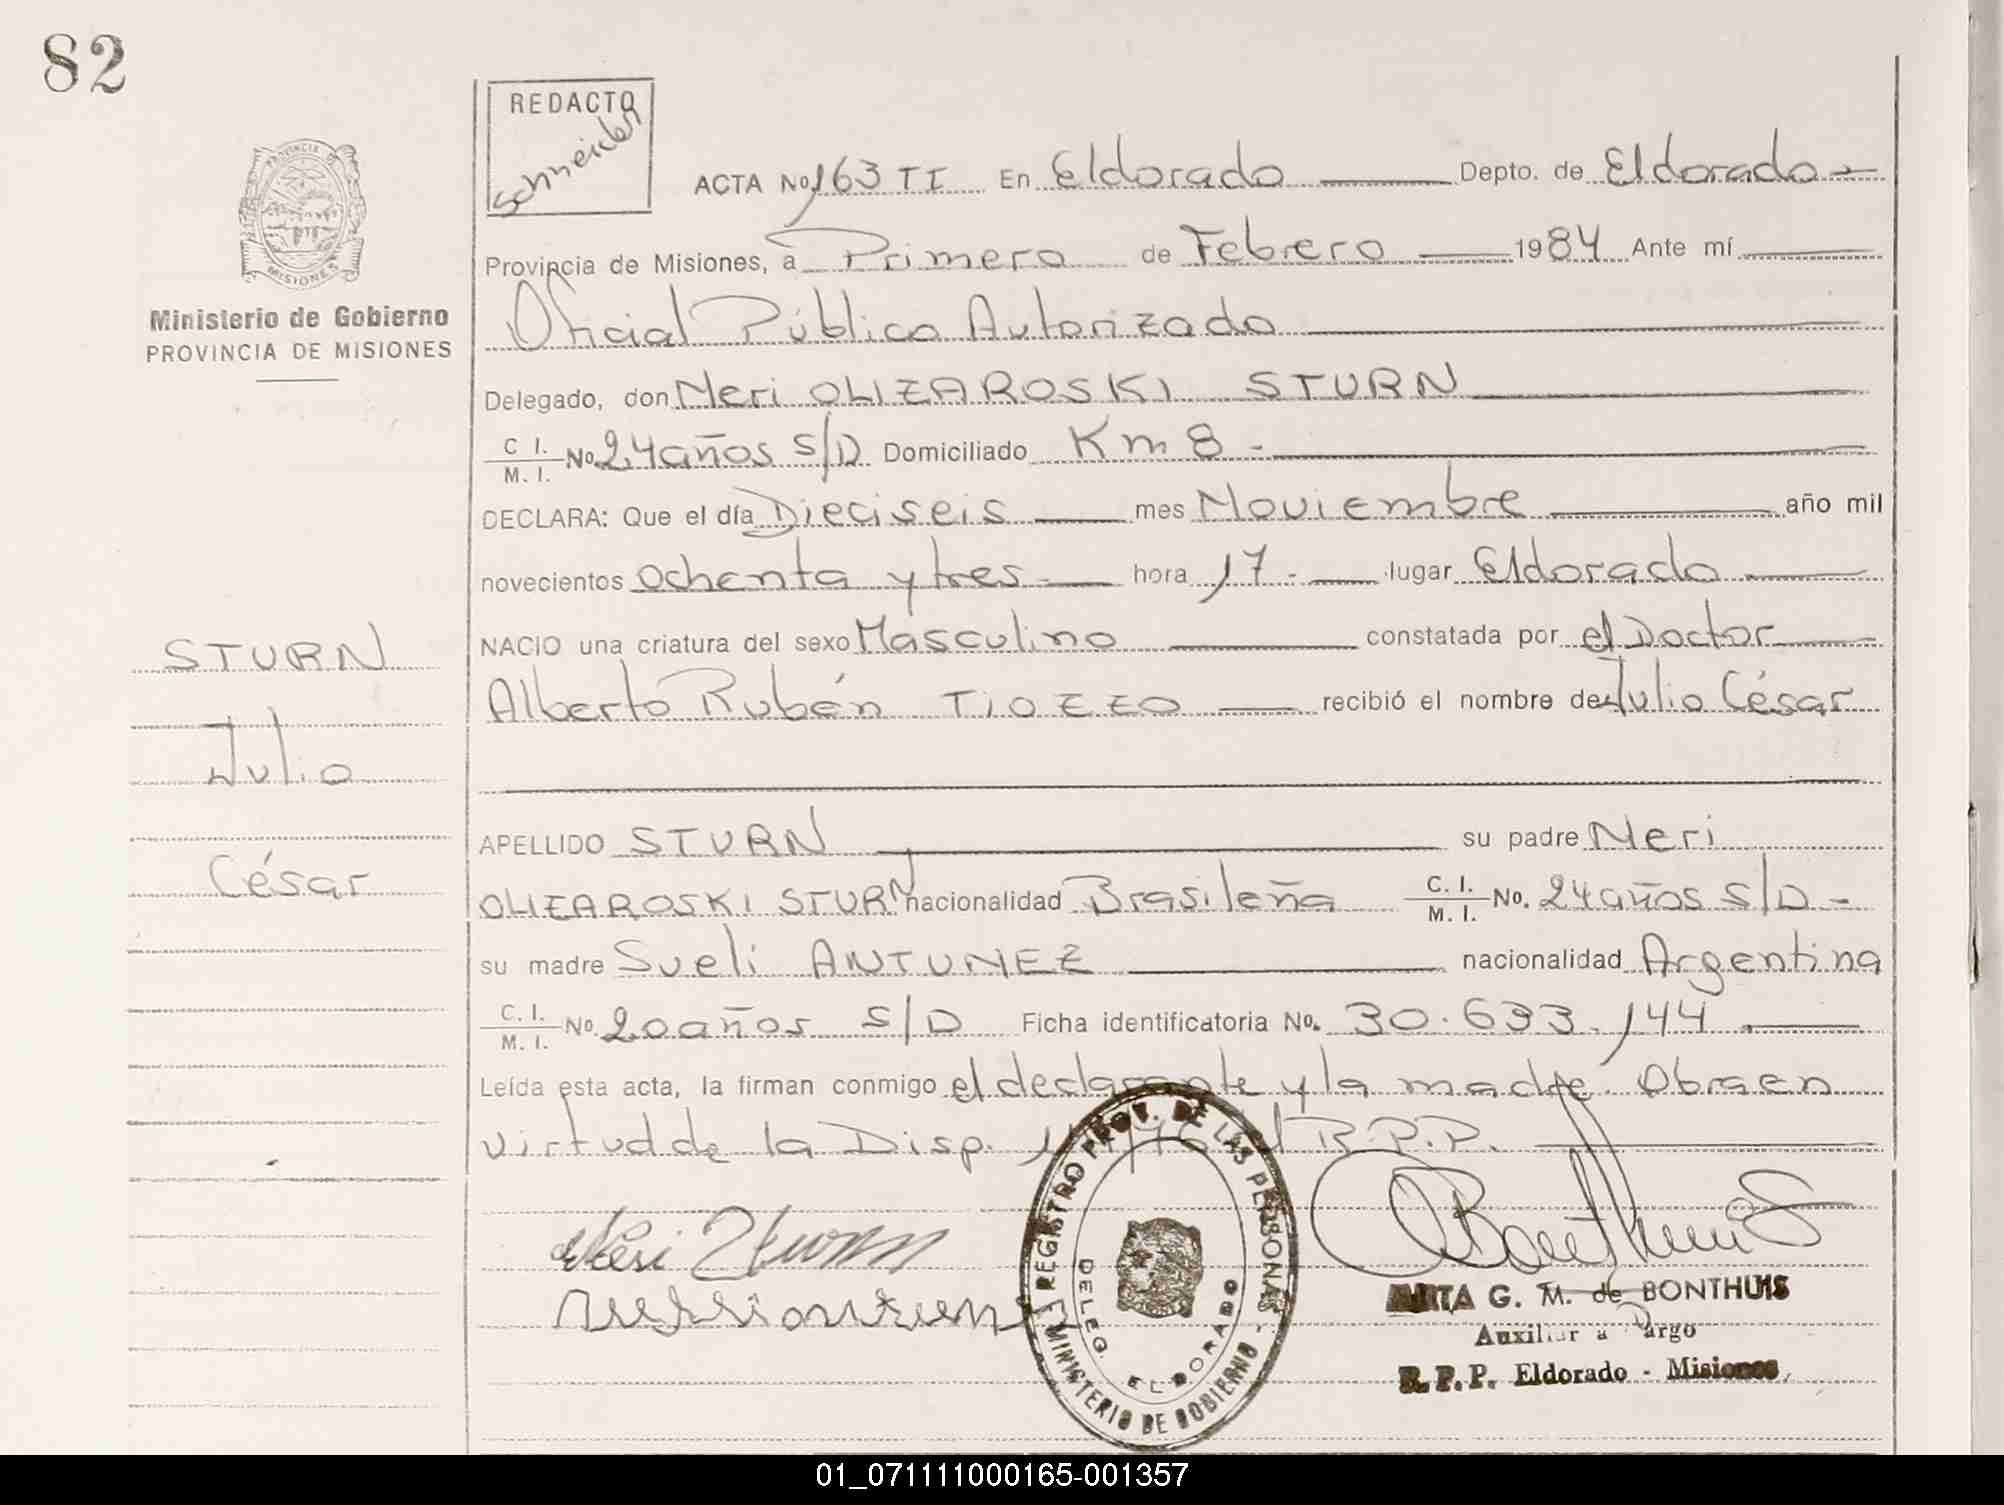 82
REDACTO
Schneider
ACTA No 163 TI En Eldorado Depto. de Eldorado
Provincia de Misiones, a Primero de Febrero 1984 Ante mí
Oficial Público Autorizado
Delegado, don Neri OLIZAROSKI STURN
C. I.
M. I. No 24 años S/D Domiciliado Km 8 -
DECLARA: Que el día Dieciseis mes Noviembre año mil
novecientos ochenta y tres hora 17. lugar Eldorado
NACIO una criatura del sexo Masculino constatada por el Doctor
Alberto Rubén TIOZZO recibió el nombre de Julio César
APELLIDO STURN su padre Neri
OLIZAROSKI STURN nacionalidad Brasileña C. I.
M. I. No. 24 años S/D -
su madre Sueli ANTUNEZ nacionalidad Argentina
C. I.
M. I. No. 20 años S/D Ficha identificatoria No. 30.633.144
Leída esta acta, la firman conmigo el declarante y la madre. Obra en
virtud de la Disp. R.P.P.
Neri Sturn
REGISTRO PROV. DE LAS PERSONAS -
MINISTERIO DE GOBIERNO -
DELEG. ELDORADO
Bonthuis
G. M. de BONTHUIS
Auxiliar a Cargo
R. P. P. Eldorado - Misiones
PROVINCIA DE
MISIONES
Ministerio de Gobierno
PROVINCIA DE MISIONES
STURN
Julio
César
01_071111000165-001357